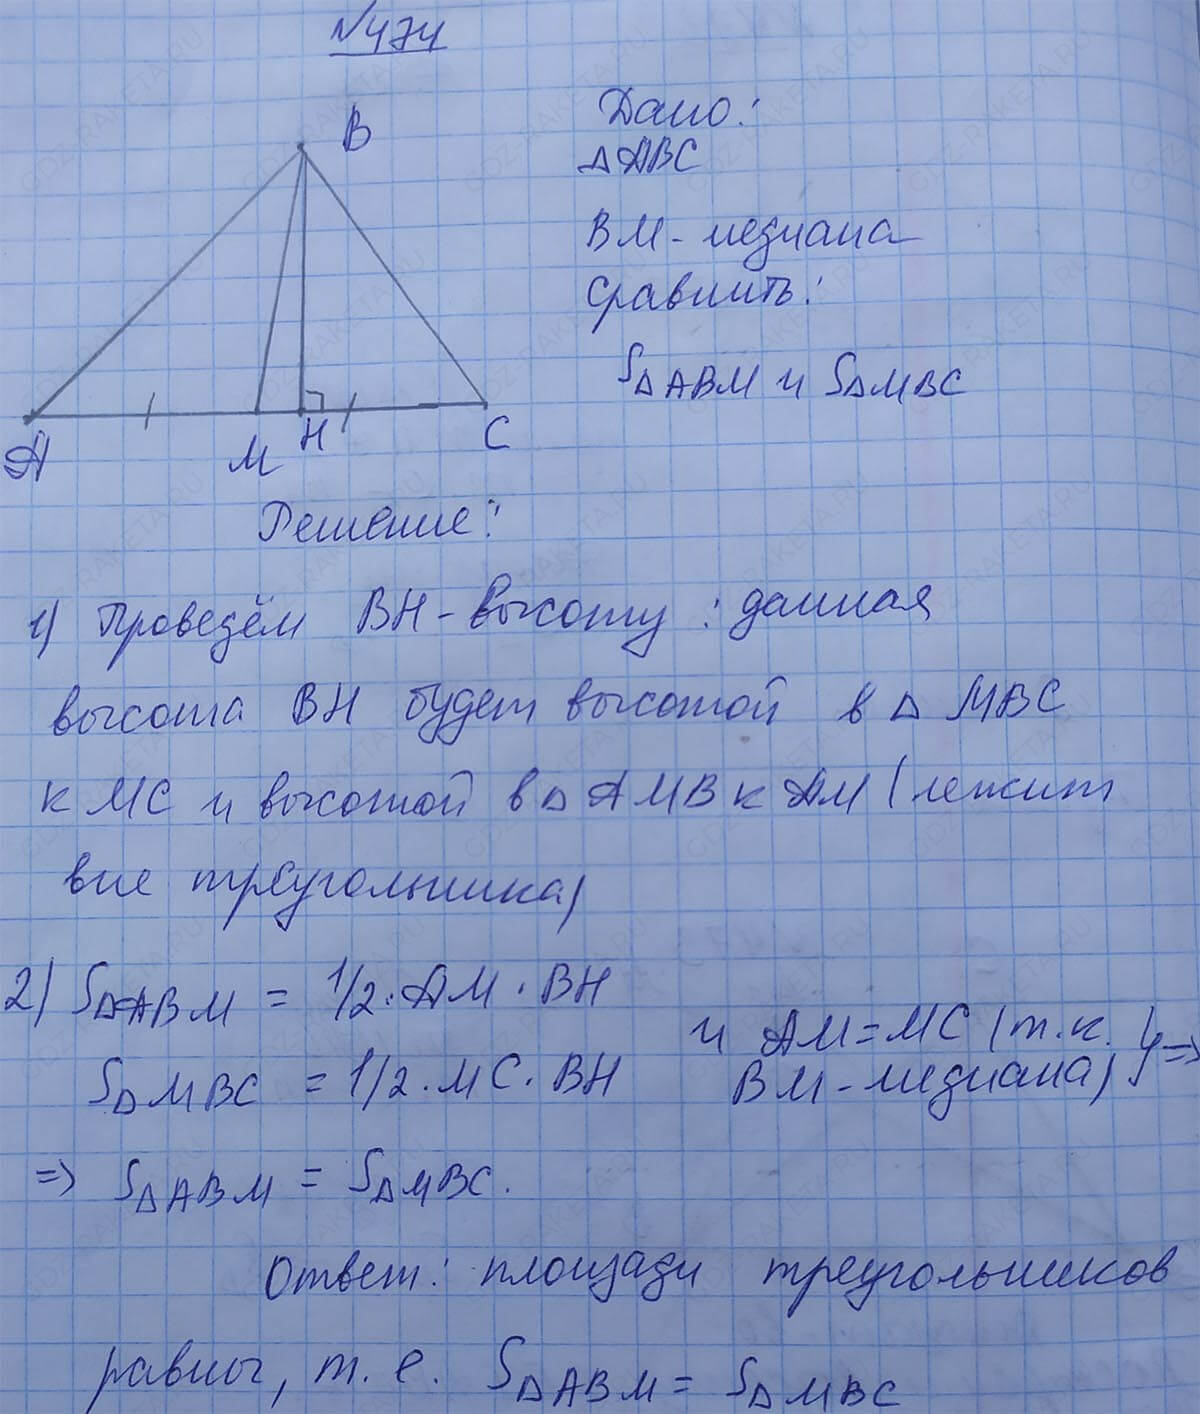 №474
B
A
M
H
C
Дано:
△ABC
BM - медиана
Сравнить:
S△ABM и S△MBC
Решение:
1) Проведём BH - высоту: данная
высота BH будет высотой в △ MBC
к MC и высотой в △ AMB к AM (лежит
вне треугольника)
2) S△ABM = 1/2 · AM · BH
S△MBC = 1/2 · MC · BH
и AM = MC (т.к.
BM - медиана) } =>
=> S△ABM = S△MBC.
Ответ: площади треугольников
равны, т.е. S△ABM = S△MBC